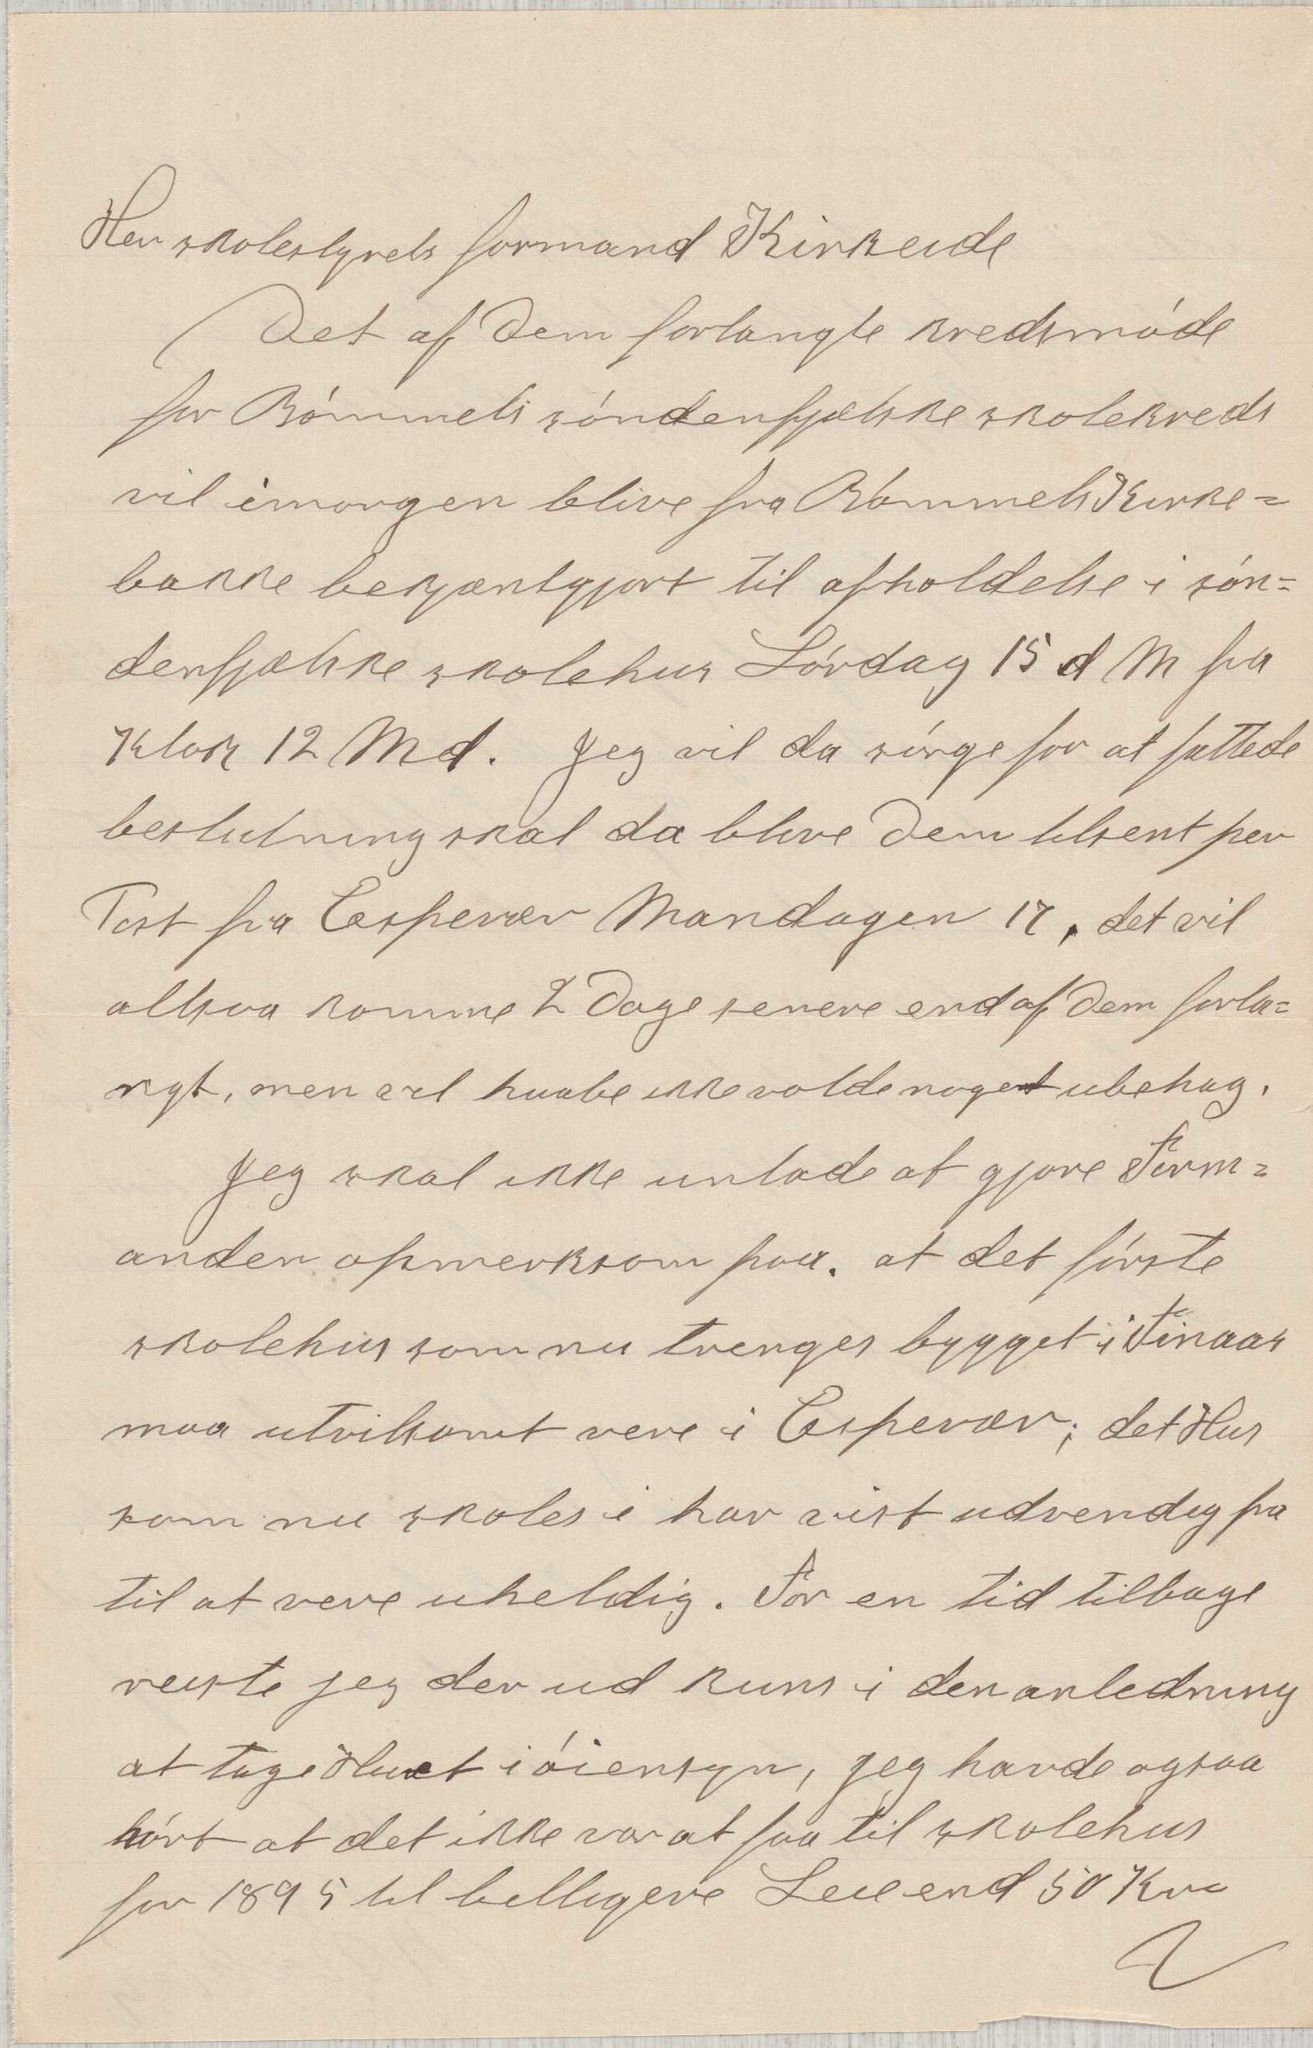 Herr skolestyrets formand Kirkeide
Det af Dem forlangte kredsmóde
for Bómmels sóndenfjælske skolekreds
vil imorgen blive fra Bómmels Kirke=
bakke bekjæntgjort til afholdelse i són=
denfjælske skolehus Lórdag 15 d M fra
Klok 12 Md. Jeg vil da sórge for at fattede
beslutning skal da blive Dem tilsent per
Post fra Espevær Mandagen 17, det vil
altsaa komme 2 Dage senere end af Dem forla=
ngt, men vil haabe ikke volde noget ubehag.
Jeg skal ikke unlade at gjøre Form=
anden opmerksom paa. at det fórste
skolehus som nu trenges bygget i Finaas
maa utvilsomt vere i Espevær; det Hus
som nu skoles i har vist udvendig fra
til at vere uheldig. For en tid tilbage
reiste jeg der ud kuns i den anledning
at tage Huset i óiensyn, jeg havde ogsaa
hórt at det ikke var at faa til skolehus
for 1895 til billigere Leie end 50 Kr